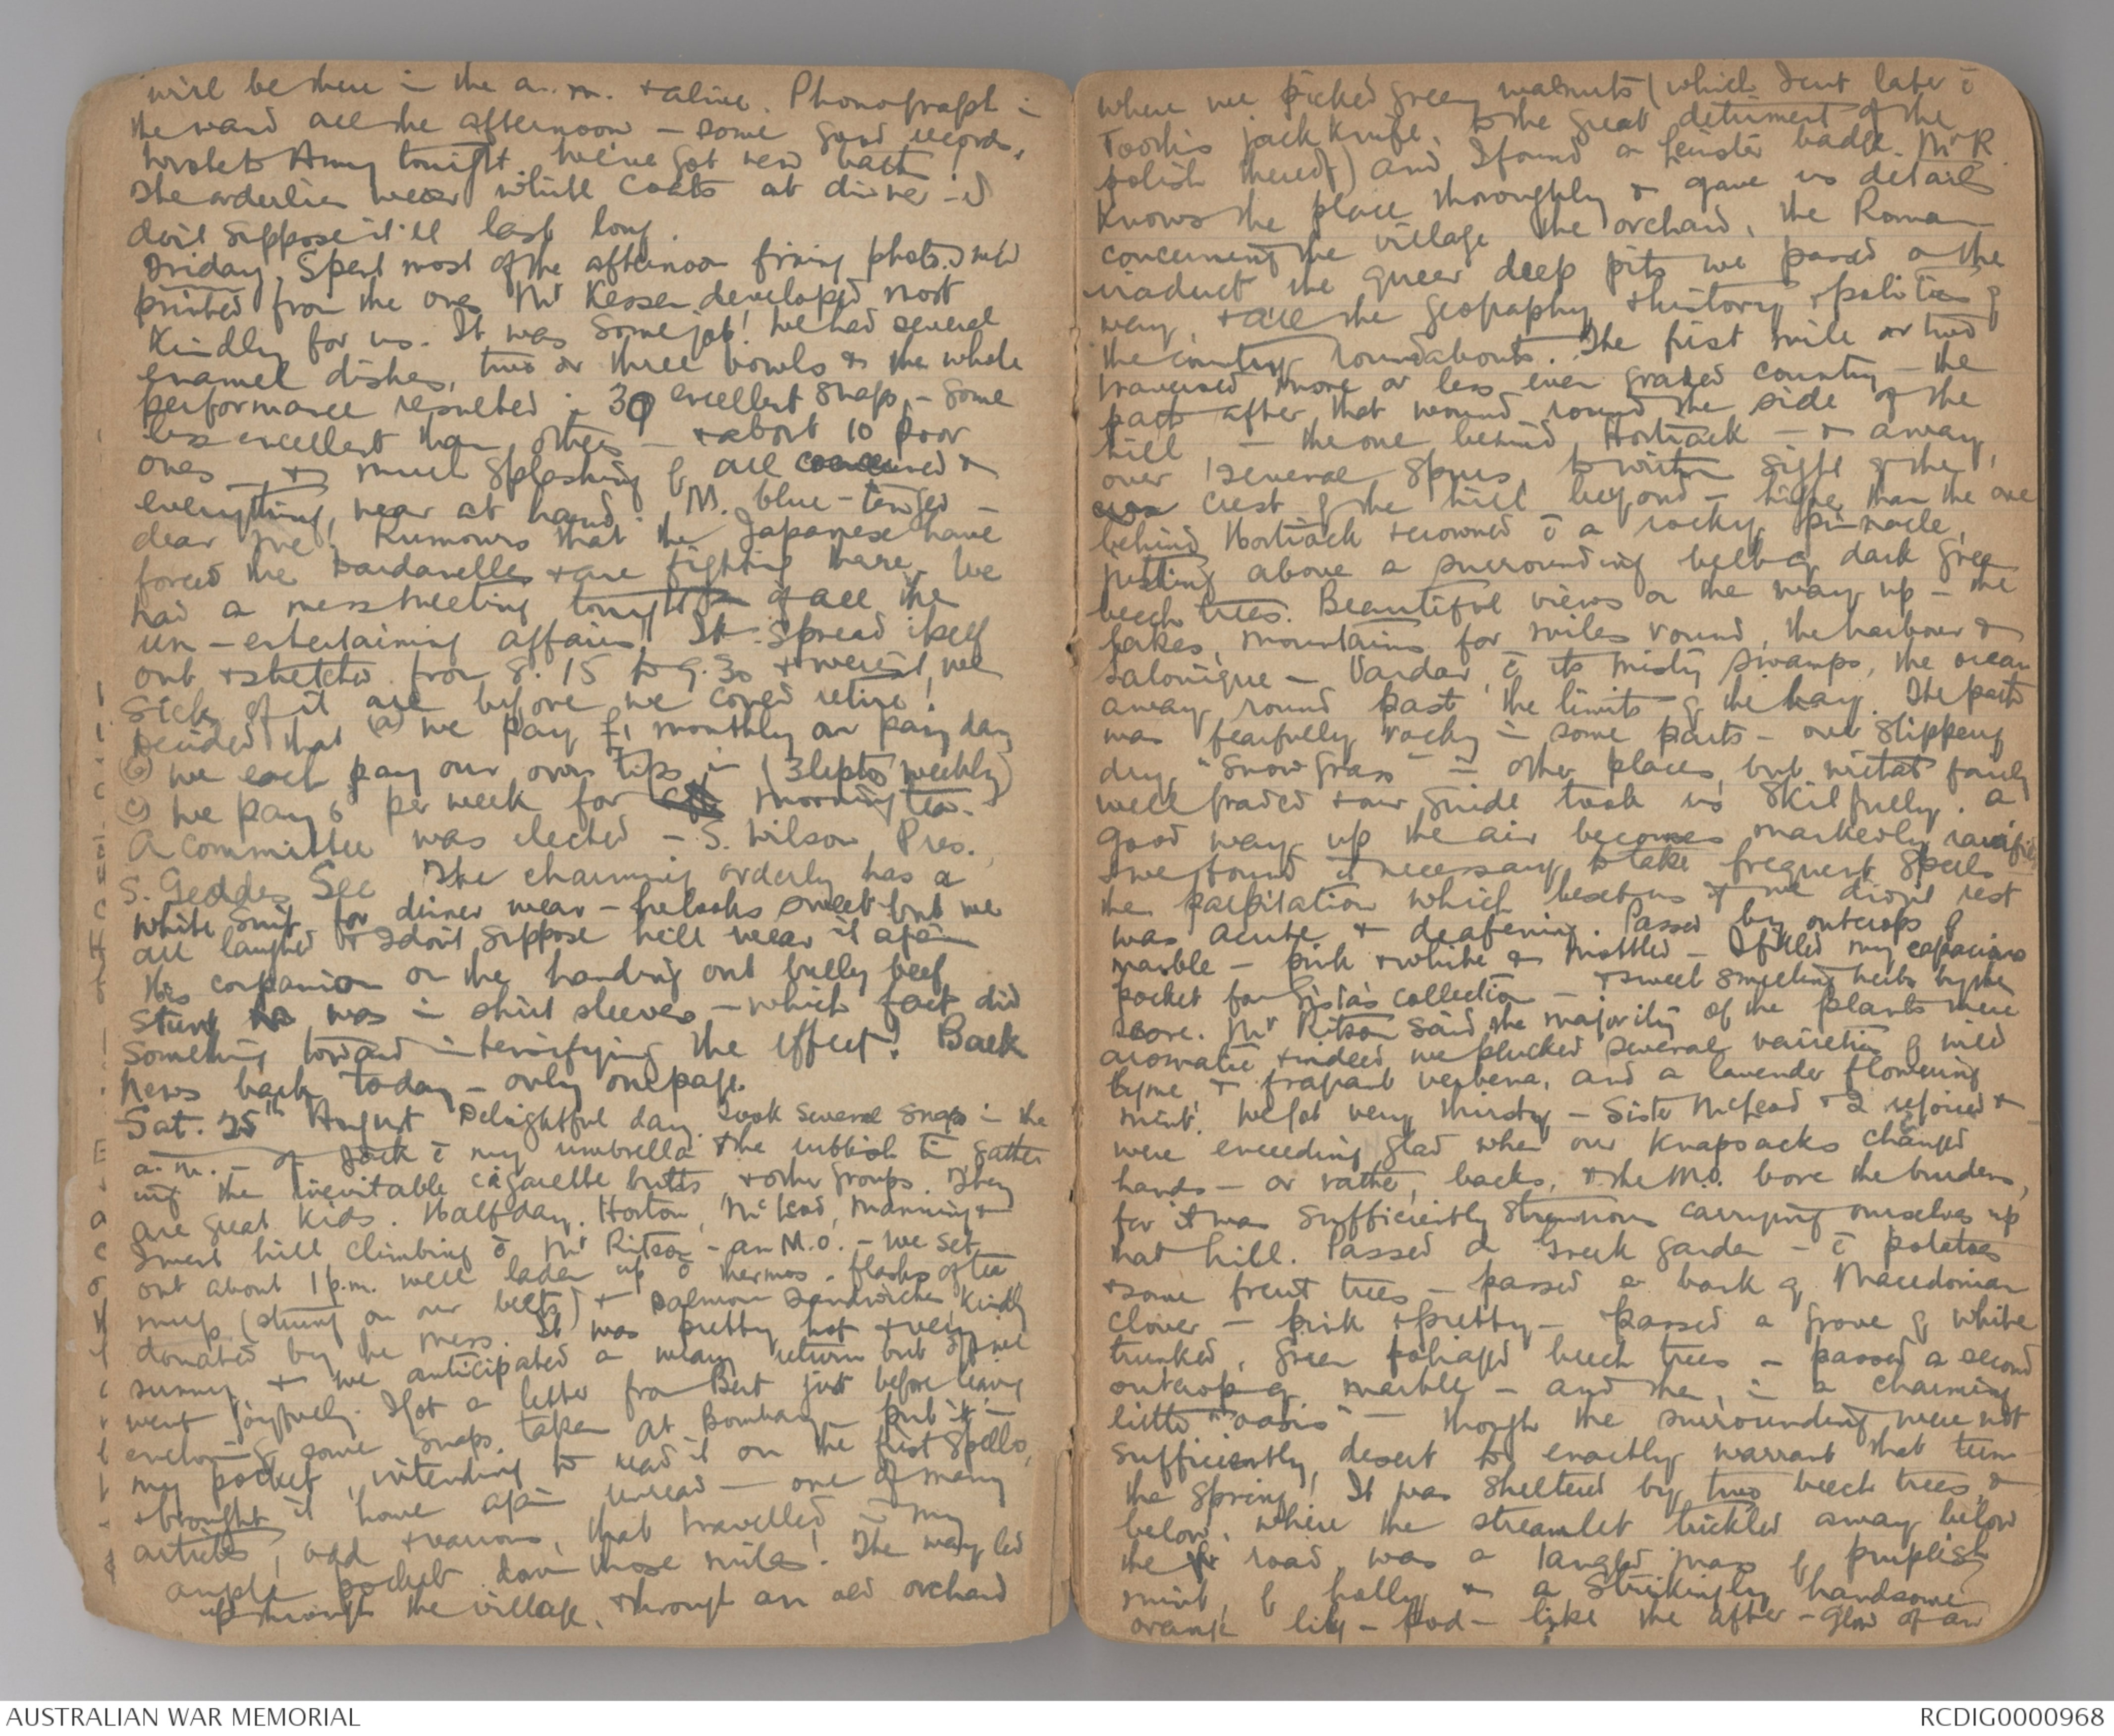 will be there in the a.m. & alive. Phonograph in
the ward all the afternoon – some good records.
Wrote to Amy tonight. We've got new bath!
The orderlies wear white coats at dinner – I
don't suppose it'll last long.
Friday. Spent most of the afternoon fixing photos I'd
printed from the ones Mr Kesson developed most
kindly for us. It was some job! We had several
enamel dishes, two or three bowls & the whole
performance resulted in 30 excellent snaps, – some
less excellent than others – & about 10 poor
ones – & much splashing of all concerned &
everything near at hand. M. blue-tinged –
dear me! Rumours that the Japanese have
forced the Dardanelles & are fighting there. We
had a mess meeting tonight – of all the
un-entertaining affairs! It spread itself
out & stretched from 8.15 to 9.30 & weren't we
sick of it all before we could retire!
Decided that (a) we pay £1 monthly on pay day
(b) we each pay our own tips in (3 leptos weekly)
(c) We pay 6d per week for morning tea.
A committee was elected – S. Wilson, Pres.,
S. Geddes, Sec. The charming orderly has a
white suit for dinner wear – he looks sweet but we
all laughed & I don't suppose he'll wear it again
His companion in the handing out bully beef
stunt was in shirt sleeves – which fact did
something toward intensifying the effect! Balk
News back today – only one page.
Sat. 25th August Delightful day. Took several snaps in the
a.m. – of Jack c̄ my umbrella & the rubbish tin gather
ing the inevitable cigarette butts & other groups. They
are great kids. Half day. Horton, McLeod, Manning &
I went hill climbing c̄ Mr Ritson – an M.O. – We set
out about 1 p.m. well laden up c̄ thermos, flasks of tea
mugs (strung on our belts) & salmon sandwiches kindly
donated by the mess. It was pretty hot & very
sunny & we anticipated a weary return but off we
went joyfully. I got a letter from Bert just before leaving
enclosing some snaps taken at Bombay – put it in
my pocket, intending to read it on the first spello,
& brought it home again unread – one of many
articles, odd & various, that travelled in my
ample pocket down those miles! The way led
up through the village, & through an old orchard
where we picked green walnuts (which I cut later c̄
Tootis jack knife, to the great detriment of the
polish thereof) and I found a Leinster badge. Mr R.
knows the place thoroughly & gave us details
concerning the village the orchard, the Roman
viaduct the queer deep pits we passed on the
way, & all the geography & history & politics of
the country roundabouts. The first mile or two
traversed more or less even grassed country – the
path after that wound round the side of the
hill – the one behind Hortiack – & away
over several spurs, to within sight of the
crest of the hill beyond – higher than the one
behind Hortiack & crowned c̄ a rocky pinnacle,
jutting above a surrounding belt of dark green
beech trees. Beautiful views on the way up – the
lakes, mountains for miles round, the harbour &
Salonique – Vardar, c̄ its misty swamps, the ocean
away round past the limits of the bay. The path
was fearfully rocky in some parts – over slippery
dry "snow grass" in other places, but withal fairly
well graded & our guide took us skilfully. A
good way up the air becomes markedly rarified
& we found it necessary to take frequent spells
the palpitation which beset us if we didn't rest
was acute & deafening. Passed by outcrops of
marble – pink & white & mottled – I filled my capacious
pocket for Sista's collection – & sweet smelling herbs by the
score. Mr Ritson said the majority of the plants were
aromatic & indeed we plucked several varieties of wild
tyme, & fragrant verbena, and a lavender flowering
mint. We got very thirsty – Sister McLeod & I rejoiced &
were exceeding glad when our knapsacks changed
hands – or rather, backs, & the M.O. bore the burdens,
for it was sufficiently strenuous carrying ourselves up
that hill. Passed a Greek garden – c̄ potatoes
& some fruit trees – passed a bank of Macedonian
clover – pink & pretty – passed a grove of white
trunked, green foliaged beech trees – passed a second
outcrop of marble – and then, in a charming
little "oasis" – though the surroundings were not
sufficiently desert to exactly warrant that term –
the Spring! It was sheltered by two beech trees, &
below, where the streamlet trickled away below
the road, was a tangled mass of purplish
mint, of holly & a strikingly handsome
orange lily-pod – like the after-glow of an